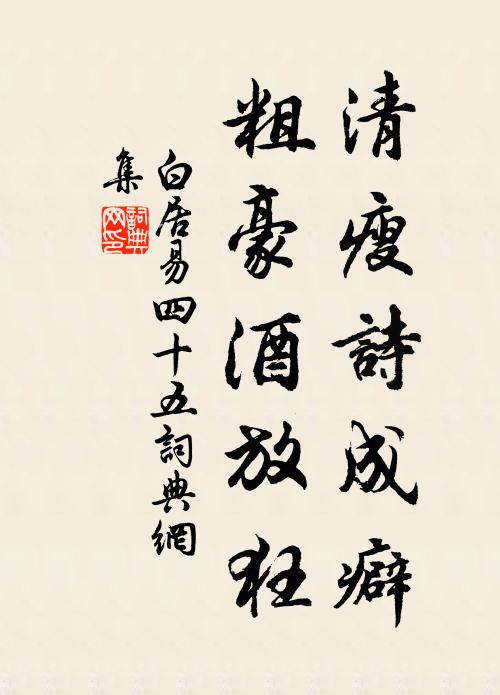 清瘦詩成癖
粗豪酒放狂
白居易四十五詞典網
集
詞典
网印